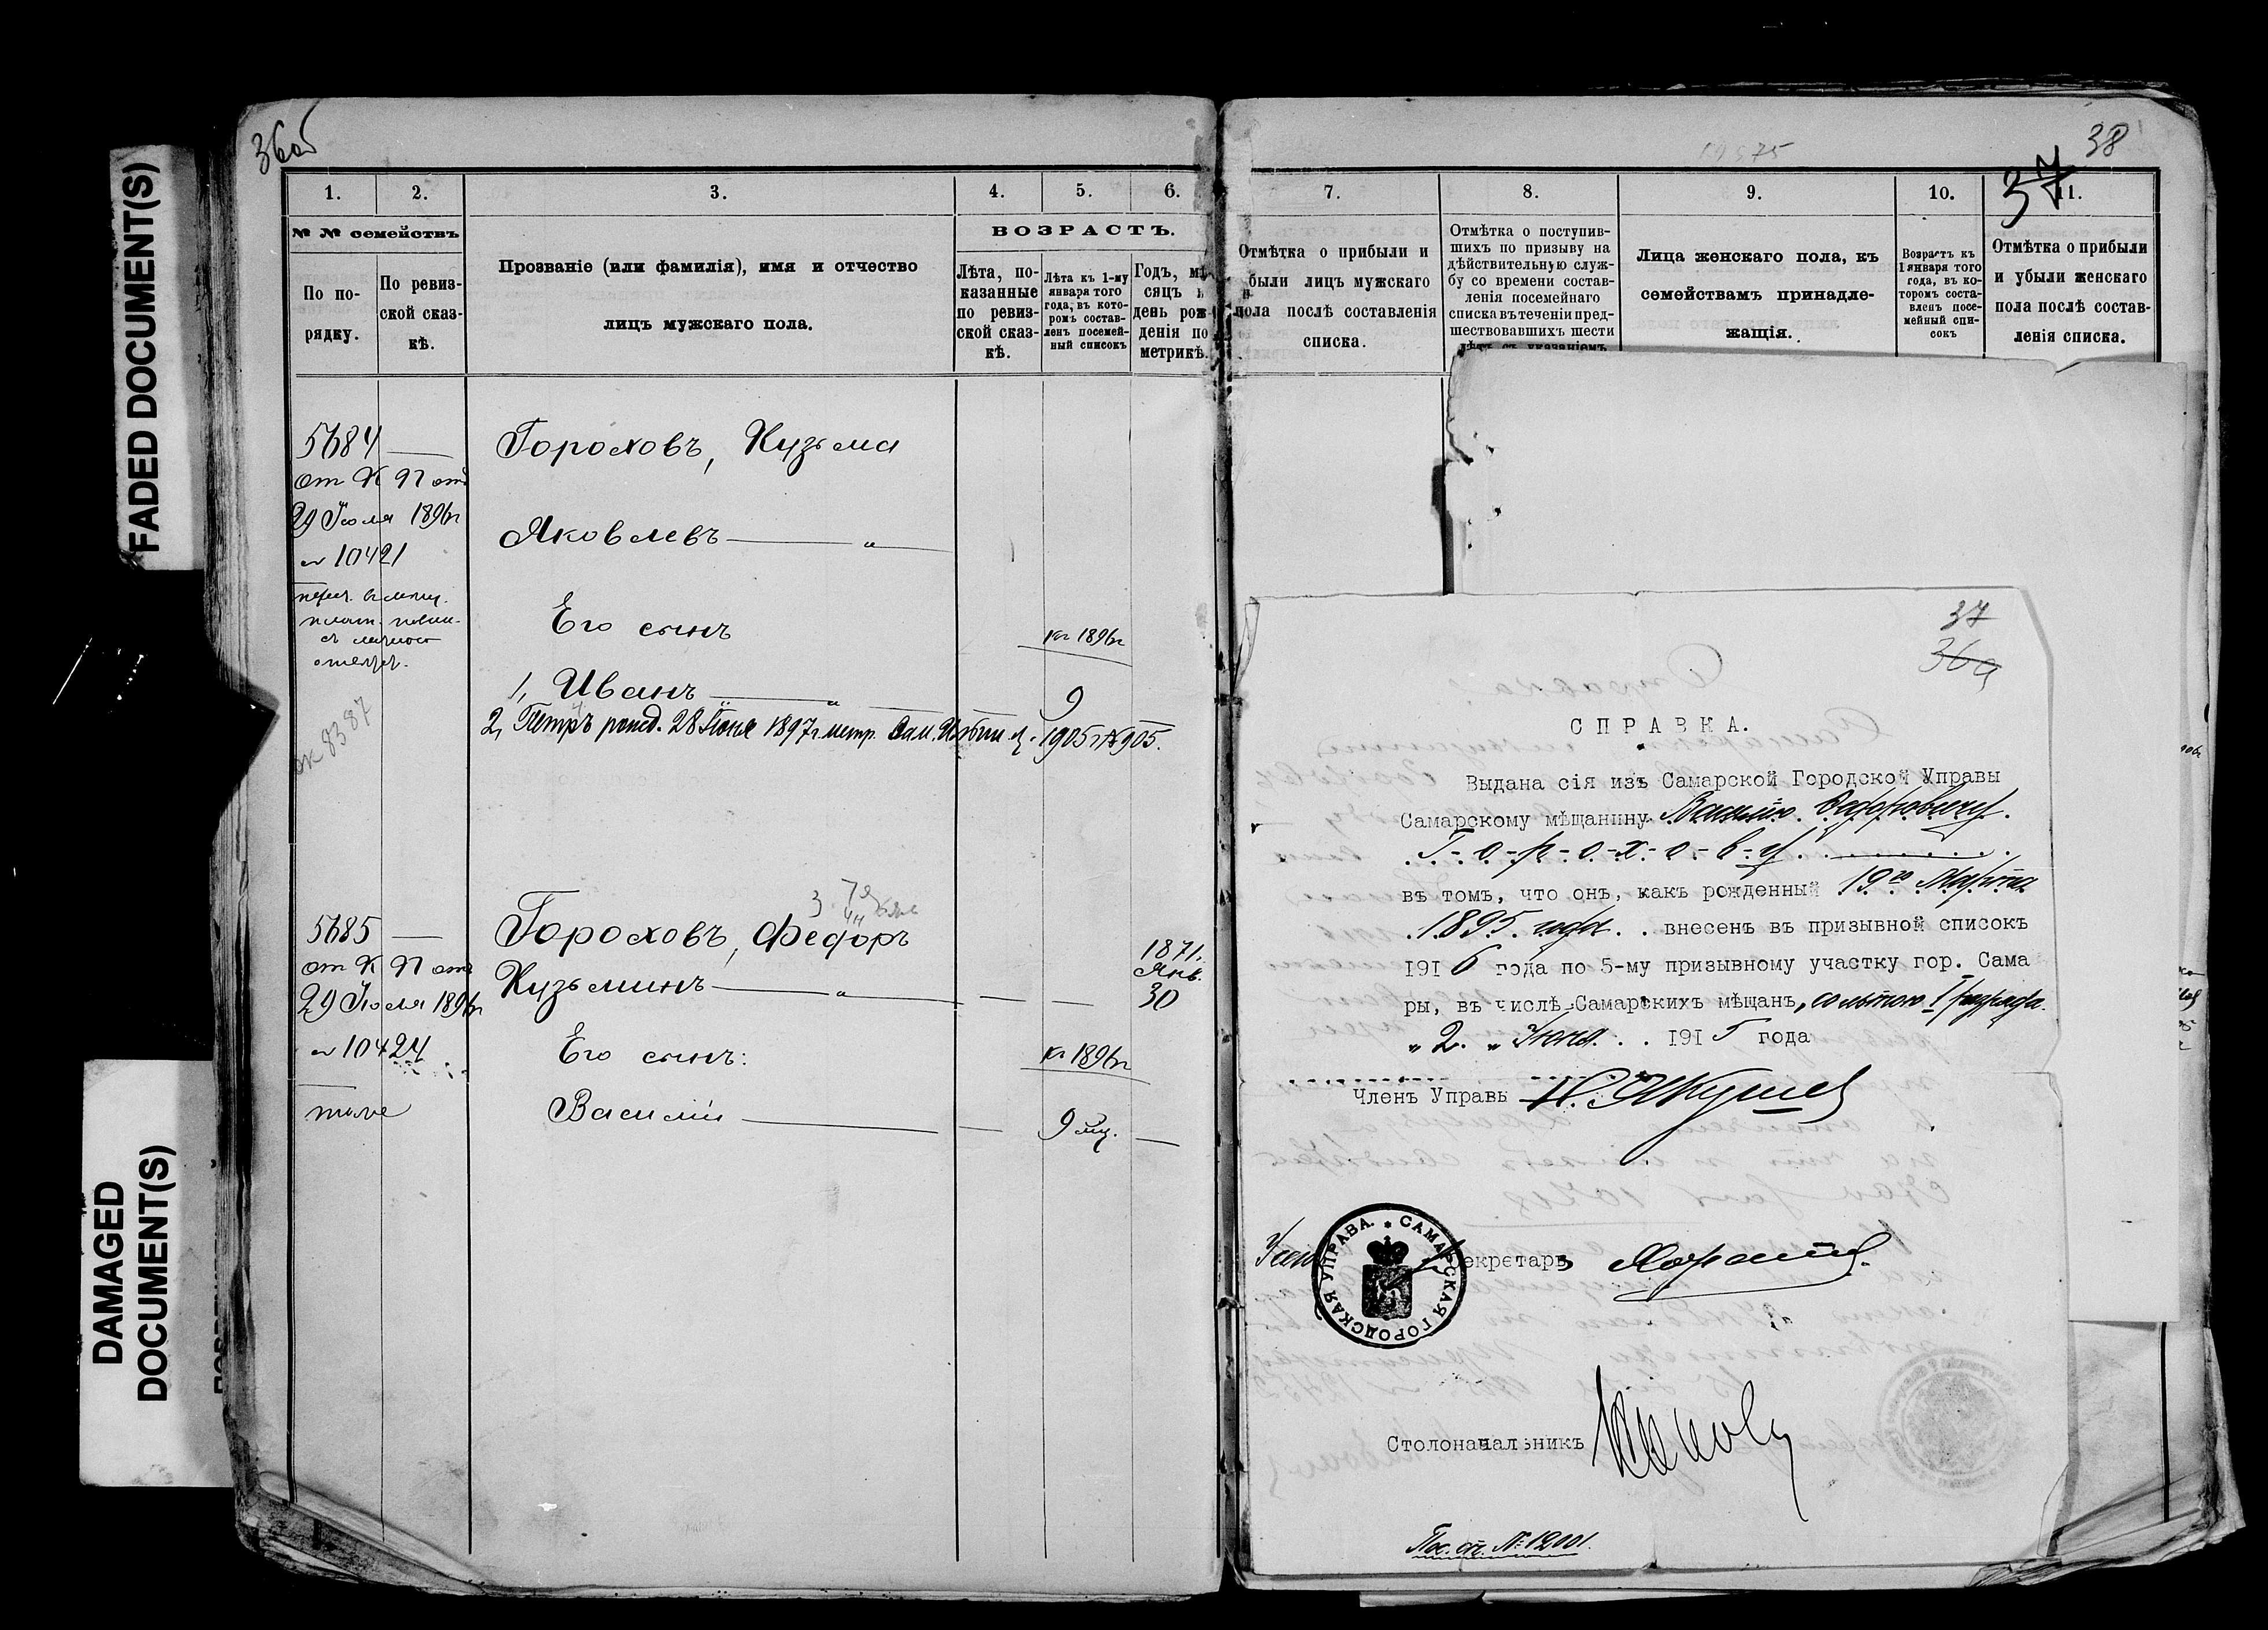 FADED DOCUMENT(S)
DAMAGED
DOCUMENT(S)
36об
1. 2. 3. 4. 5. 6.
№ № семействъ
По по-
рядку.
По ревиз-
ской сказ-
кѣ.
Прозваніе (или фамилія), имя и отчество
лицъ мужскаго пола.
ВОЗРАСТЪ.
Лѣта, по-
казанные
по ревиз-
ской сказ-
кѣ.
Лѣта къ 1-му
января того
года, въ кото-
ромъ состав-
ленъ посемей-
ный списокъ
Годъ, мѣ-
сяцъ и
день рож-
денія по
метрикѣ.
5684 — Гороховъ, Кузьма
от К П отъ
29 Іюля 1896 г
№ 10421
Яковлевъ — "
Его сынъ
къ 1896 г
1, Иванъ — " — 9
2, Петръ рожд. 28 Іюня 1897 г. метр. 1905 г № 905.
8387
5685 — Гороховъ, Федоръ
от К П отъ
29 Іюля 1896 г
№ 10424
Кузьминъ — "
1871.
Янв.
30
Его сынъ:
къ 1896 г
тоже
Василій — 9 мц.
38
37
7. 8. 9. 10. 11.
Отмѣтка о прибыли и
были лицъ мужскаго
пола послѣ составленія
списка.
Отмѣтка о поступив-
шихъ по призыву на
дѣйствительную служ-
бу со времени состав-
ленія посемейнаго
списка въ теченіи пред-
шествовавшихъ шести
лѣтъ съ указаніемъ
Лица женскаго пола, къ
семействамъ принадле-
жащія.
Возрастъ къ
1 января того
года, въ ко-
торомъ соста-
вленъ посе-
мейный спи-
сокъ
Отмѣтка о прибыли
и убыли женскаго
пола послѣ состав-
ленія списка.
37
36а
СПРАВКА.
Выдана сія изъ Самарской Городской Управы
Самарскому мѣщанину Василію Федоровичу
Г-о-р-о-х-о-в-у
въ томъ, что онъ, какъ рожденный 19го Марта
1895 года внесенъ въ призывной списокъ
1916 года по 5-му призывному участку гор. Сама
ры, въ числѣ Самарскихъ мѣщанъ, со льготою I разряда.
"2" Іюня 1915 года
Членъ Управы
САМАРСКАЯ ГОРОДСКАЯ УПРАВА.
Секретарь
Столоначальникъ
Пос. сп. № 12001.